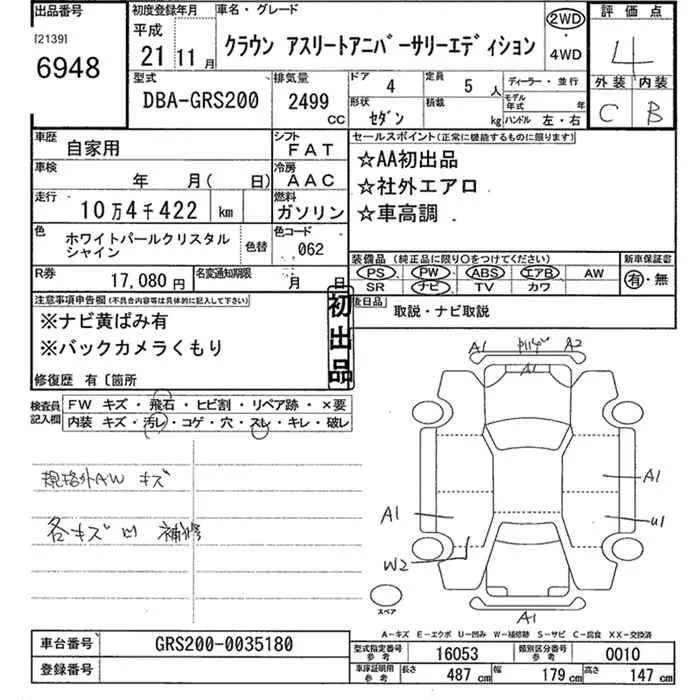 出品番号
[2139]
6948
初度登録年月
平成
21 11月
車名・グレード
クラウン アスリートアニバーサリーエディション
2WD
・
4WD
評価点
4
外装 内装
C B
型式
DBA-GRS200
排気量
2499
CC
ドア 4
定員 5 人
ディーラー・並行
形状 セダン
積載 kg
モデル年式 年
ハンドル 左・右
車歴 自家用
シフト FAT
車検 年 月( 日)
冷房 AAC
走行 10万4千422 km
燃料 ガソリン
色 ホワイトパールクリスタル
シャイン
色替
色コード 062
R券 17,080円
名変通知期限 月 日
セールスポイント(正常に機能するものに限ります)
☆AA初出品
☆社外エアロ
☆車高調
装備品 (純正品に限り○をつけてください)
PS PW ABS エアB AW
SR ナビ TV カワ
新車保証書
有・無
後日品 取説・ナビ取説
注意事項申告欄(不具合内容等は具体的に記入して下さい)
※ナビ黄ばみ有
※バックカメラくもり
初出品
修復歴 有〔箇所
検査員記入欄
FW キズ・飛石・ヒビ割・リペア跡・×要
内装 キズ・汚レ・コゲ・穴・スレ・キレ・破レ
規格外AW キズ
各キズ凹 補修
A1 A2
A1
A1 U1
W2
A1
スペア
A-キズ E-エクボ U-凹み W-補修跡 S-サビ C-腐食 XX-交換済
車台番号 GRS200-0035180
登録番号
型式指定番号 参考 16053
類別区分番号 参考 0010
車庫証明用 参考 長さ 487 cm 幅 179 cm 高さ 147 cm